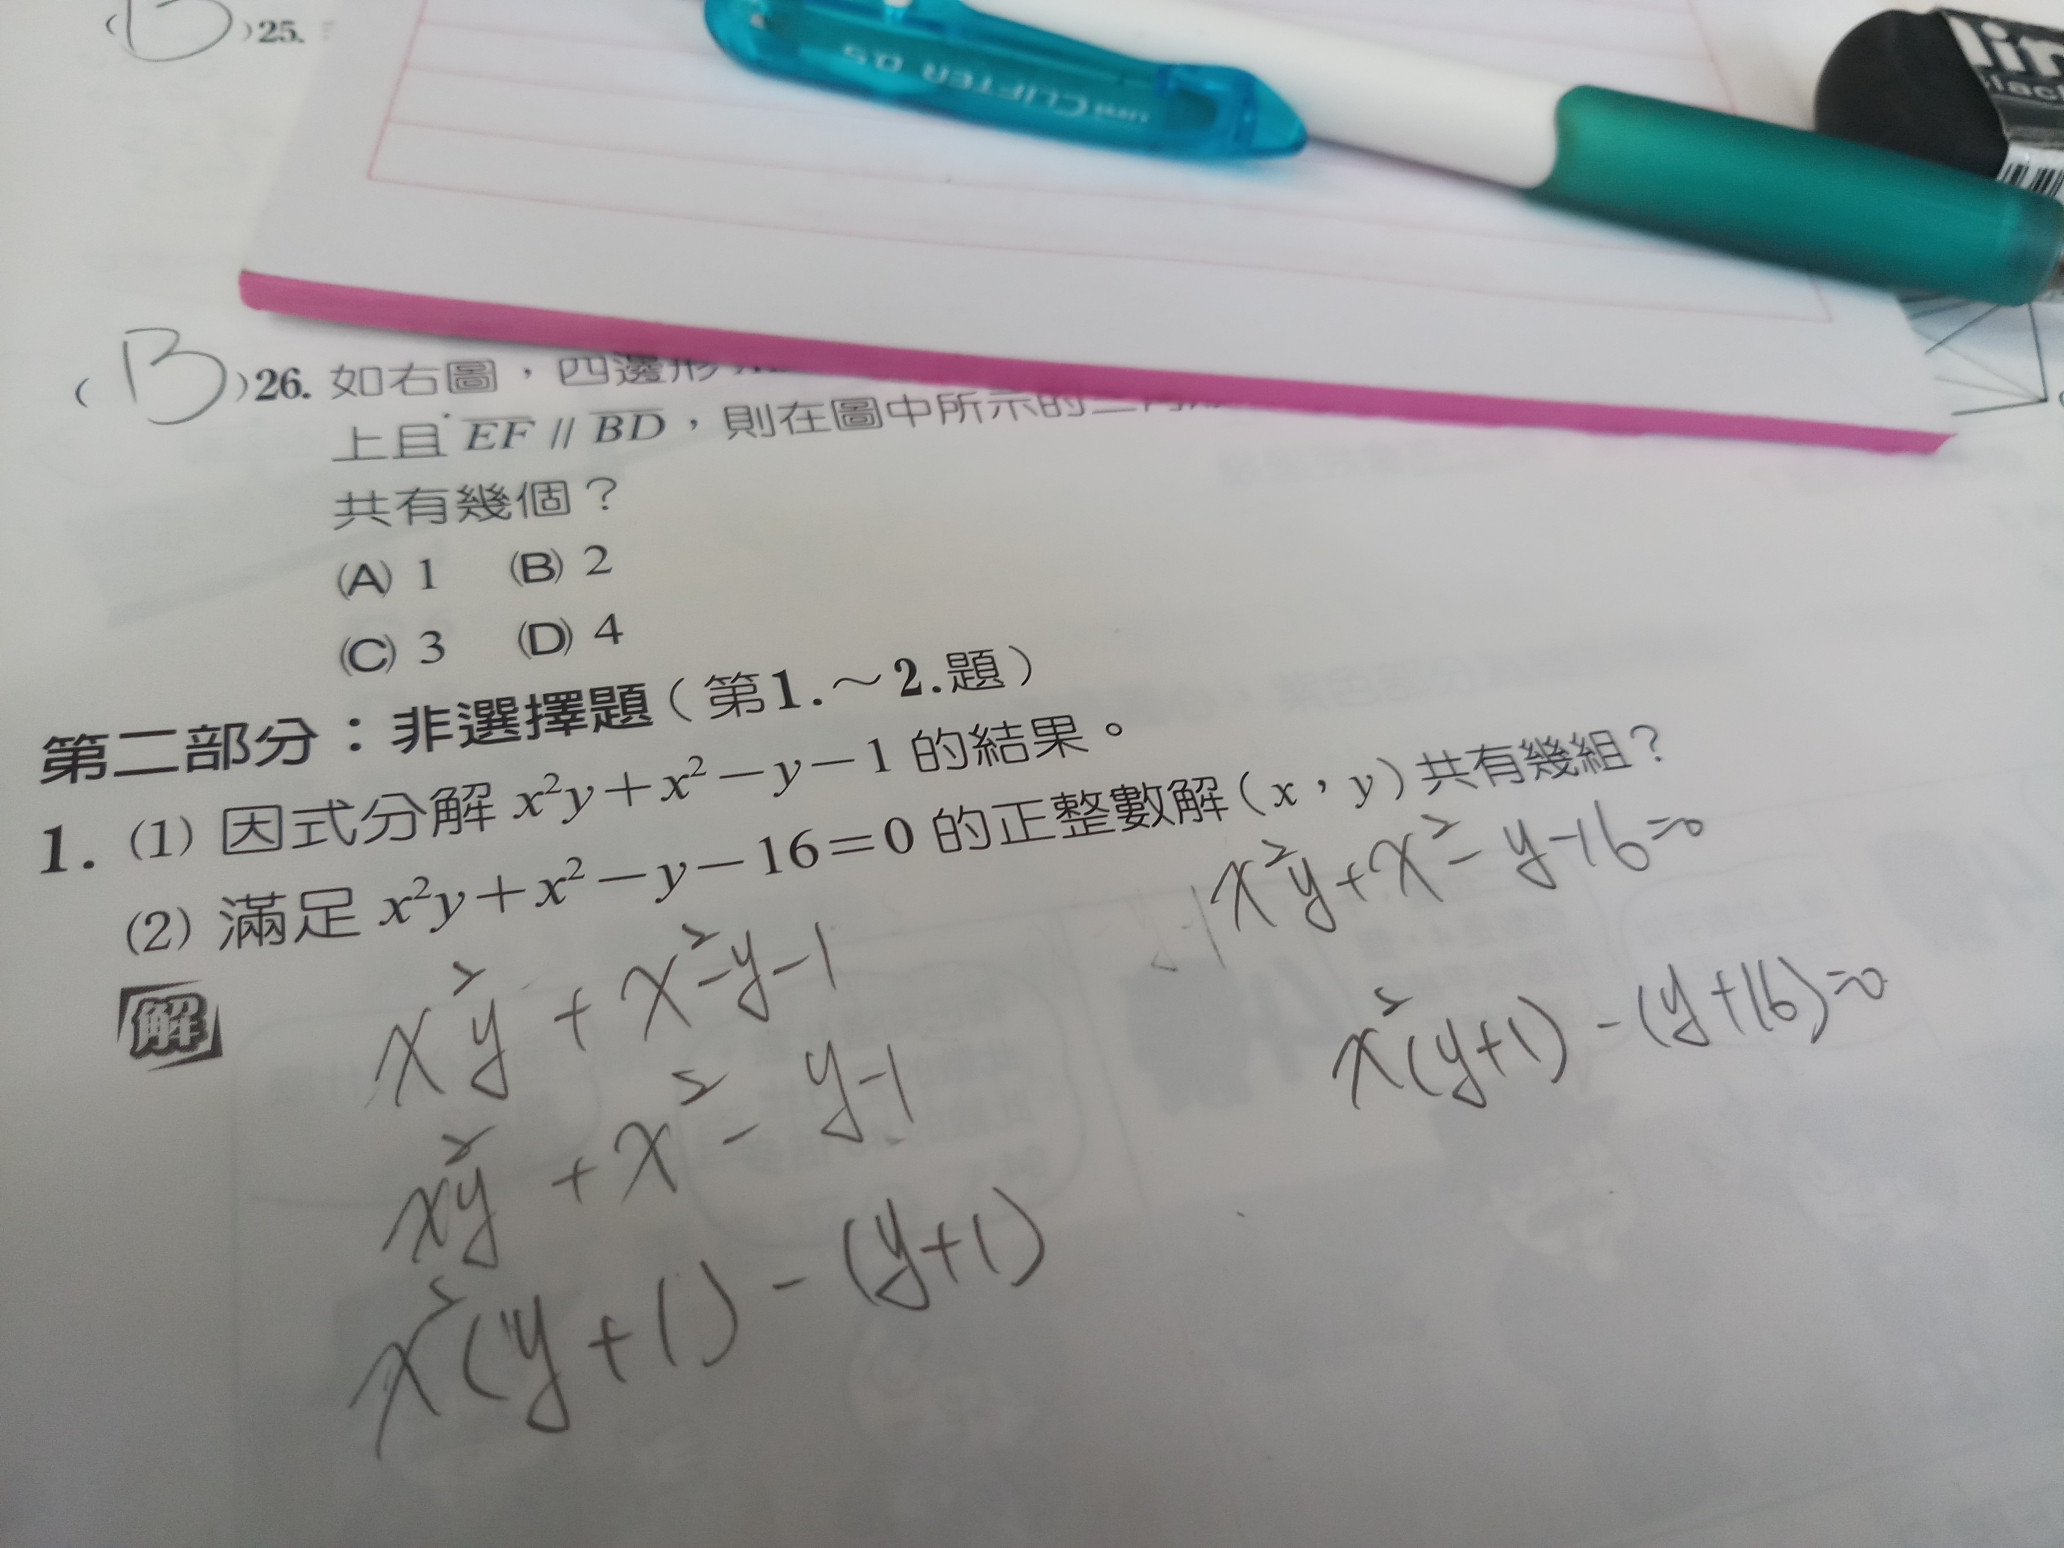 uni CLIFTER 0.5
lin
(B)25.
(B)26. 如右圖，四邊形
上且 EF // BD，則在圖中所示的三角形
共有幾個？
(A) 1 (B) 2
(C) 3 (D) 4
第二部分：非選擇題（第1.～2.題）
1. (1) 因式分解 x²y＋x²－y－1 的結果。
(2) 滿足 x²y＋x²－y－16＝0 的正整數解（x，y）共有幾組？
解
x²y + x²-y-1
x²y + x² - y-1
x²(y+1) - (y+1)
x²y+x²-y-16=0
x²(y+1) - (y+16)=0